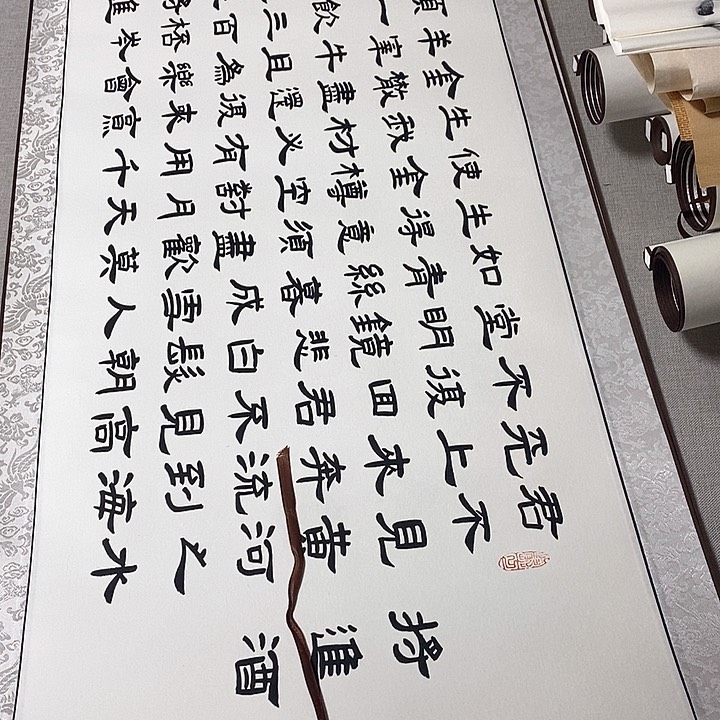 将進酒
君不見黄河之水
天上來奔流到海
不復回君不見高
堂明鏡悲白髮朝
如青絲暮成雪人
生得意須盡歡莫
使金樽空對月天
生我材必有用千
金散盡還復來烹
羊宰牛且為樂會
須一飲三百杯岑
進